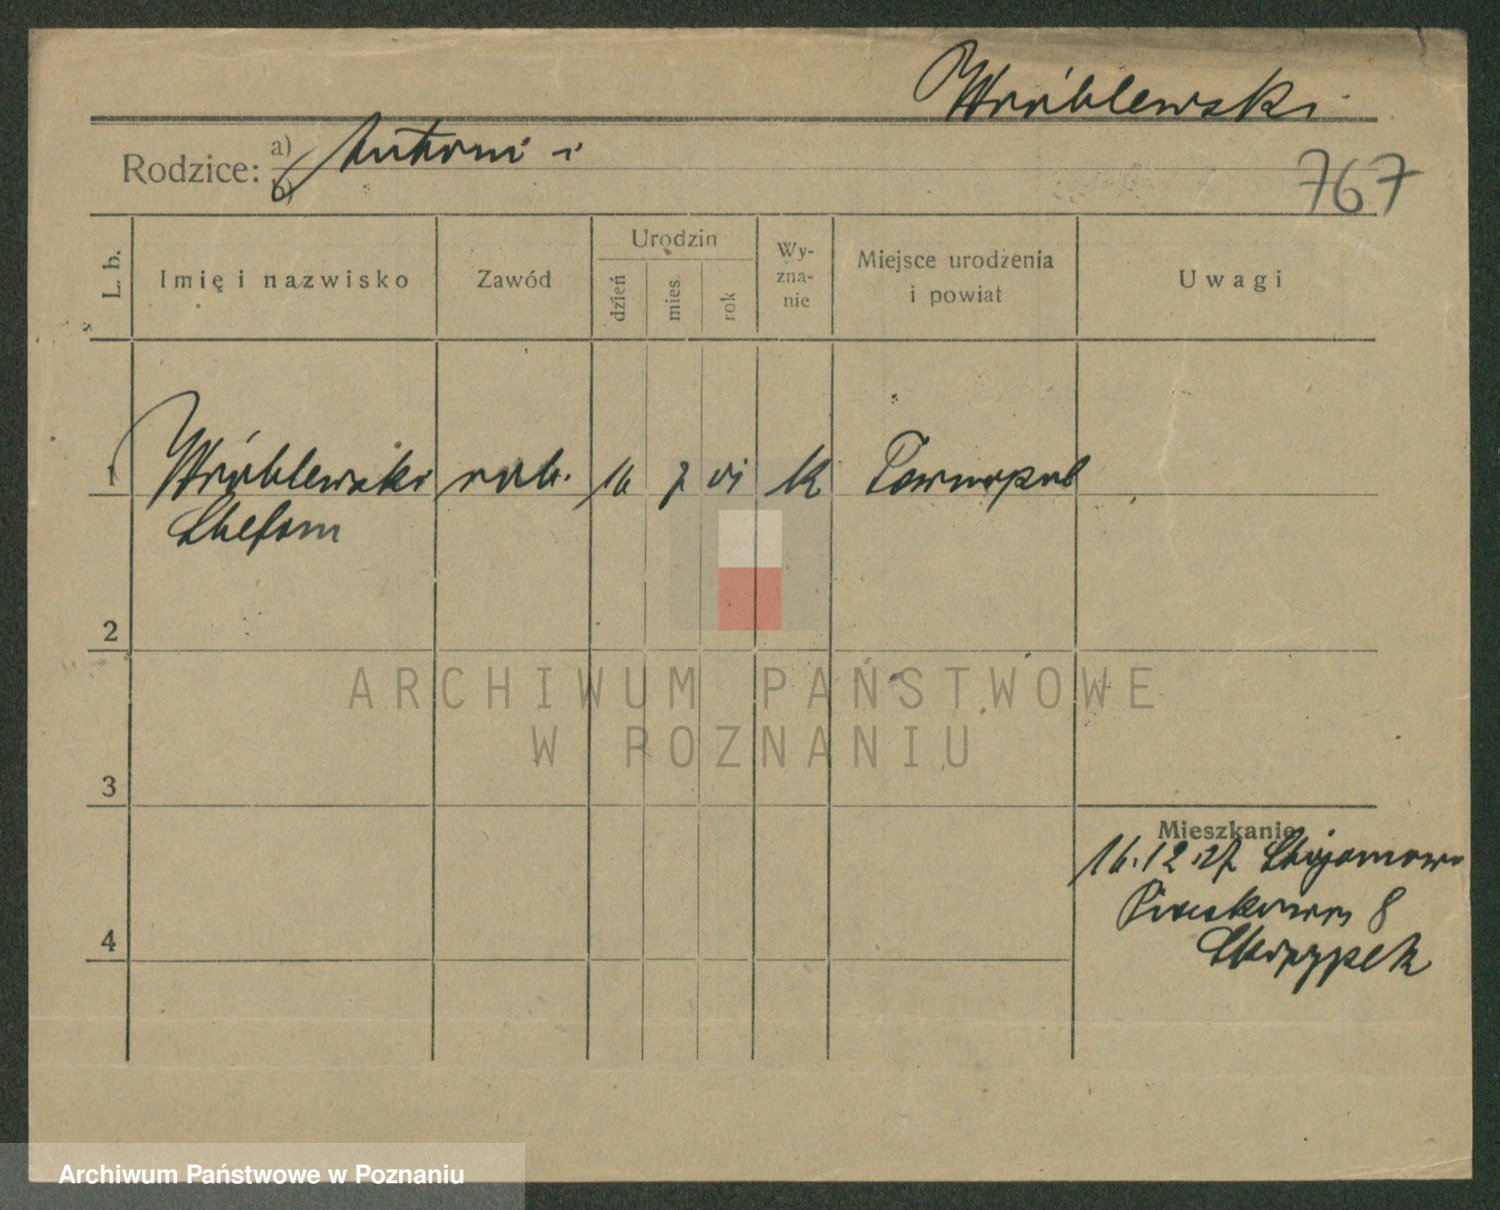 Wróblewski
Rodzice: a) Antoni i
b)
767
L. b.
Imię i nazwisko
Zawód
Urodzin
dzień
mies.
rok
Wy-
zna-
nie
Miejsce urodzenia
i powiat
Uwagi
1 Wróblewski rob. 16 7 01 k Tarnopol
Stefan
2
3
4
Mieszkanie
16.12.27
8
Skrzypek
ARCHIWUM PAŃSTWOWE
W POZNANIU
Archiwum Państwowe w Poznaniu